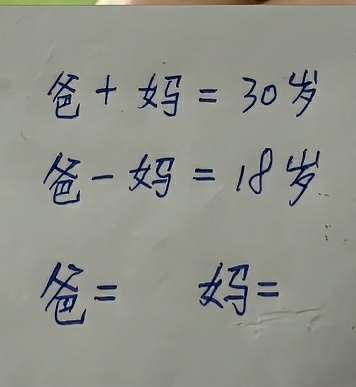 爸+妈=30岁
爸-妈=18岁
爸= 妈=